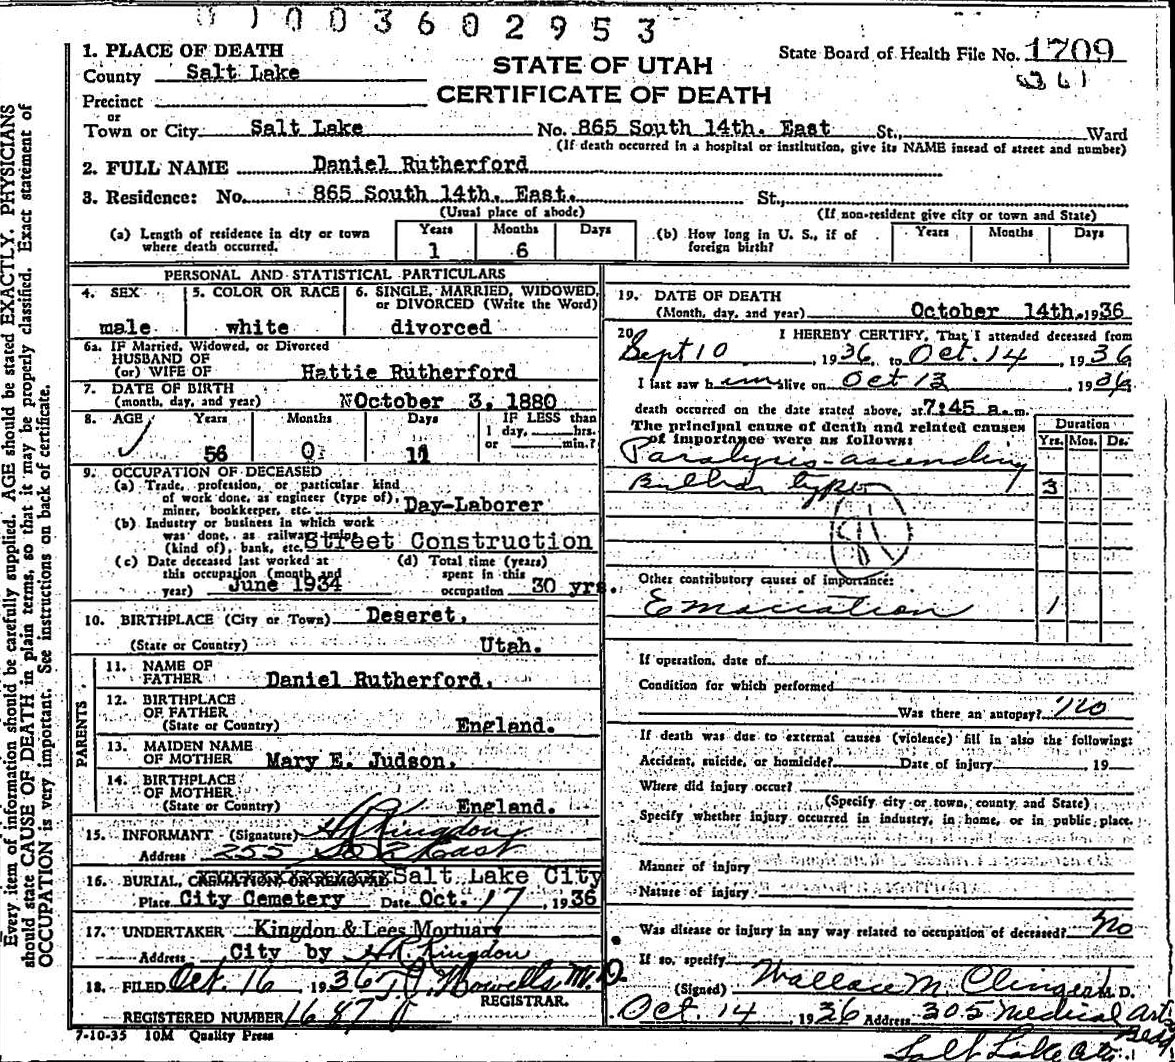 0 1 0 0 3 6 0 2 9 5 3
1. PLACE OF DEATH
County Salt Lake
STATE OF UTAH
CERTIFICATE OF DEATH
State Board of Health File No. 1709
361
Precinct
or
Town or City Salt Lake No. 865 South 14th. East St., Ward
(If death occurred in a hospital or institution, give its NAME insead of street and number)
2. FULL NAME Daniel Rutherford
3. Residence: No. 865 South 14th. East. St.,
(Usual place of abode)
(If non-resident give city or town and State)
(a) Length of residence in city or town where death occurred. Years 1 Months 6 Days
(b) How long in U. S., if of foreign birth? Years Months Days
PERSONAL AND STATISTICAL PARTICULARS
4. SEX male
5. COLOR OR RACE white
6. SINGLE, MARRIED, WIDOWED, or DIVORCED (Write the Word) divorced
6a. IF Married, Widowed, or Divorced
HUSBAND OF
(or) WIFE OF Hattie Rutherford
7. DATE OF BIRTH
(month, day, and year) October 3, 1880
8. AGE Years 56 Months 0 Days 11 IF LESS than 1 day, hrs. or min.?
9. OCCUPATION OF DECEASED
(a) Trade, profession, or particular kind
of work done, as engineer (type of),
miner, bookkeeper, etc. Day-Laborer
(b) Industry or business in which work
was done, as railway,
(kind of), bank, etc. Street Construction
(c) Date deceased last worked at
this occupation (month and
year) June 1934
(d) Total time (years)
spent in this
occupation 30 yrs.
10. BIRTHPLACE (City or Town) Deseret,
(State or Country) Utah.
PARENTS
11. NAME OF
FATHER Daniel Rutherford.
12. BIRTHPLACE
OF FATHER
(State or Country) England.
13. MAIDEN NAME
OF MOTHER Mary E. Judson.
14. BIRTHPLACE
OF MOTHER
(State or Country) England.
15. INFORMANT (Signature) Kingdon
Address 255 So 2 East
16. BURIAL, CREMATION, OR REMOVAL Salt Lake City
Place City Cemetery Date Oct. 17, 1936
17. UNDERTAKER Kingdon & Lees Mortuary
Address City by Kingdon
18. FILED Oct. 16, 1936 Howells M. D.
REGISTRAR.
REGISTERED NUMBER 1687
7-10-35 10M Quality Press
19. DATE OF DEATH
(Month, day, and year) October 14th. 1936
20. I HEREBY CERTIFY, That I attended deceased from
Sept 10, 1936, to Oct. 14, 1936
I last saw him alive on Oct 13, 1936
death occurred on the date stated above, at 7:45 a. m.
The principal cause of death and related causes
of importance were as follows:
Duration
Yrs. Mos. Ds.
Paralysis-ascending
Bulbar type 3
Other contributory causes of importance:
Emaciation 1
If operation, date of
Condition for which performed
Was there an autopsy? no
If death was due to external causes (violence) fill in also the following:
Accident, suicide, or homicide? Date of injury 19
Where did injury occur?
(Specify city or town, county and State)
Specify whether injury occurred in industry, in home, or in public place.
Manner of injury
Nature of injury
Was disease or injury in any way related to occupation of deceased? No
If so, specify
(Signed) Wallace M. Clinger M. D.
Oct. 14 1936 Address 305 Medical Art Bldg
Salt Lake City
Every item of information should be carefully supplied. AGE should be stated EXACTLY. PHYSICIANS
should state CAUSE OF DEATH in plain terms, so that it may be properly classified. Exact statement of
OCCUPATION is very important. See instructions on back of certificate.